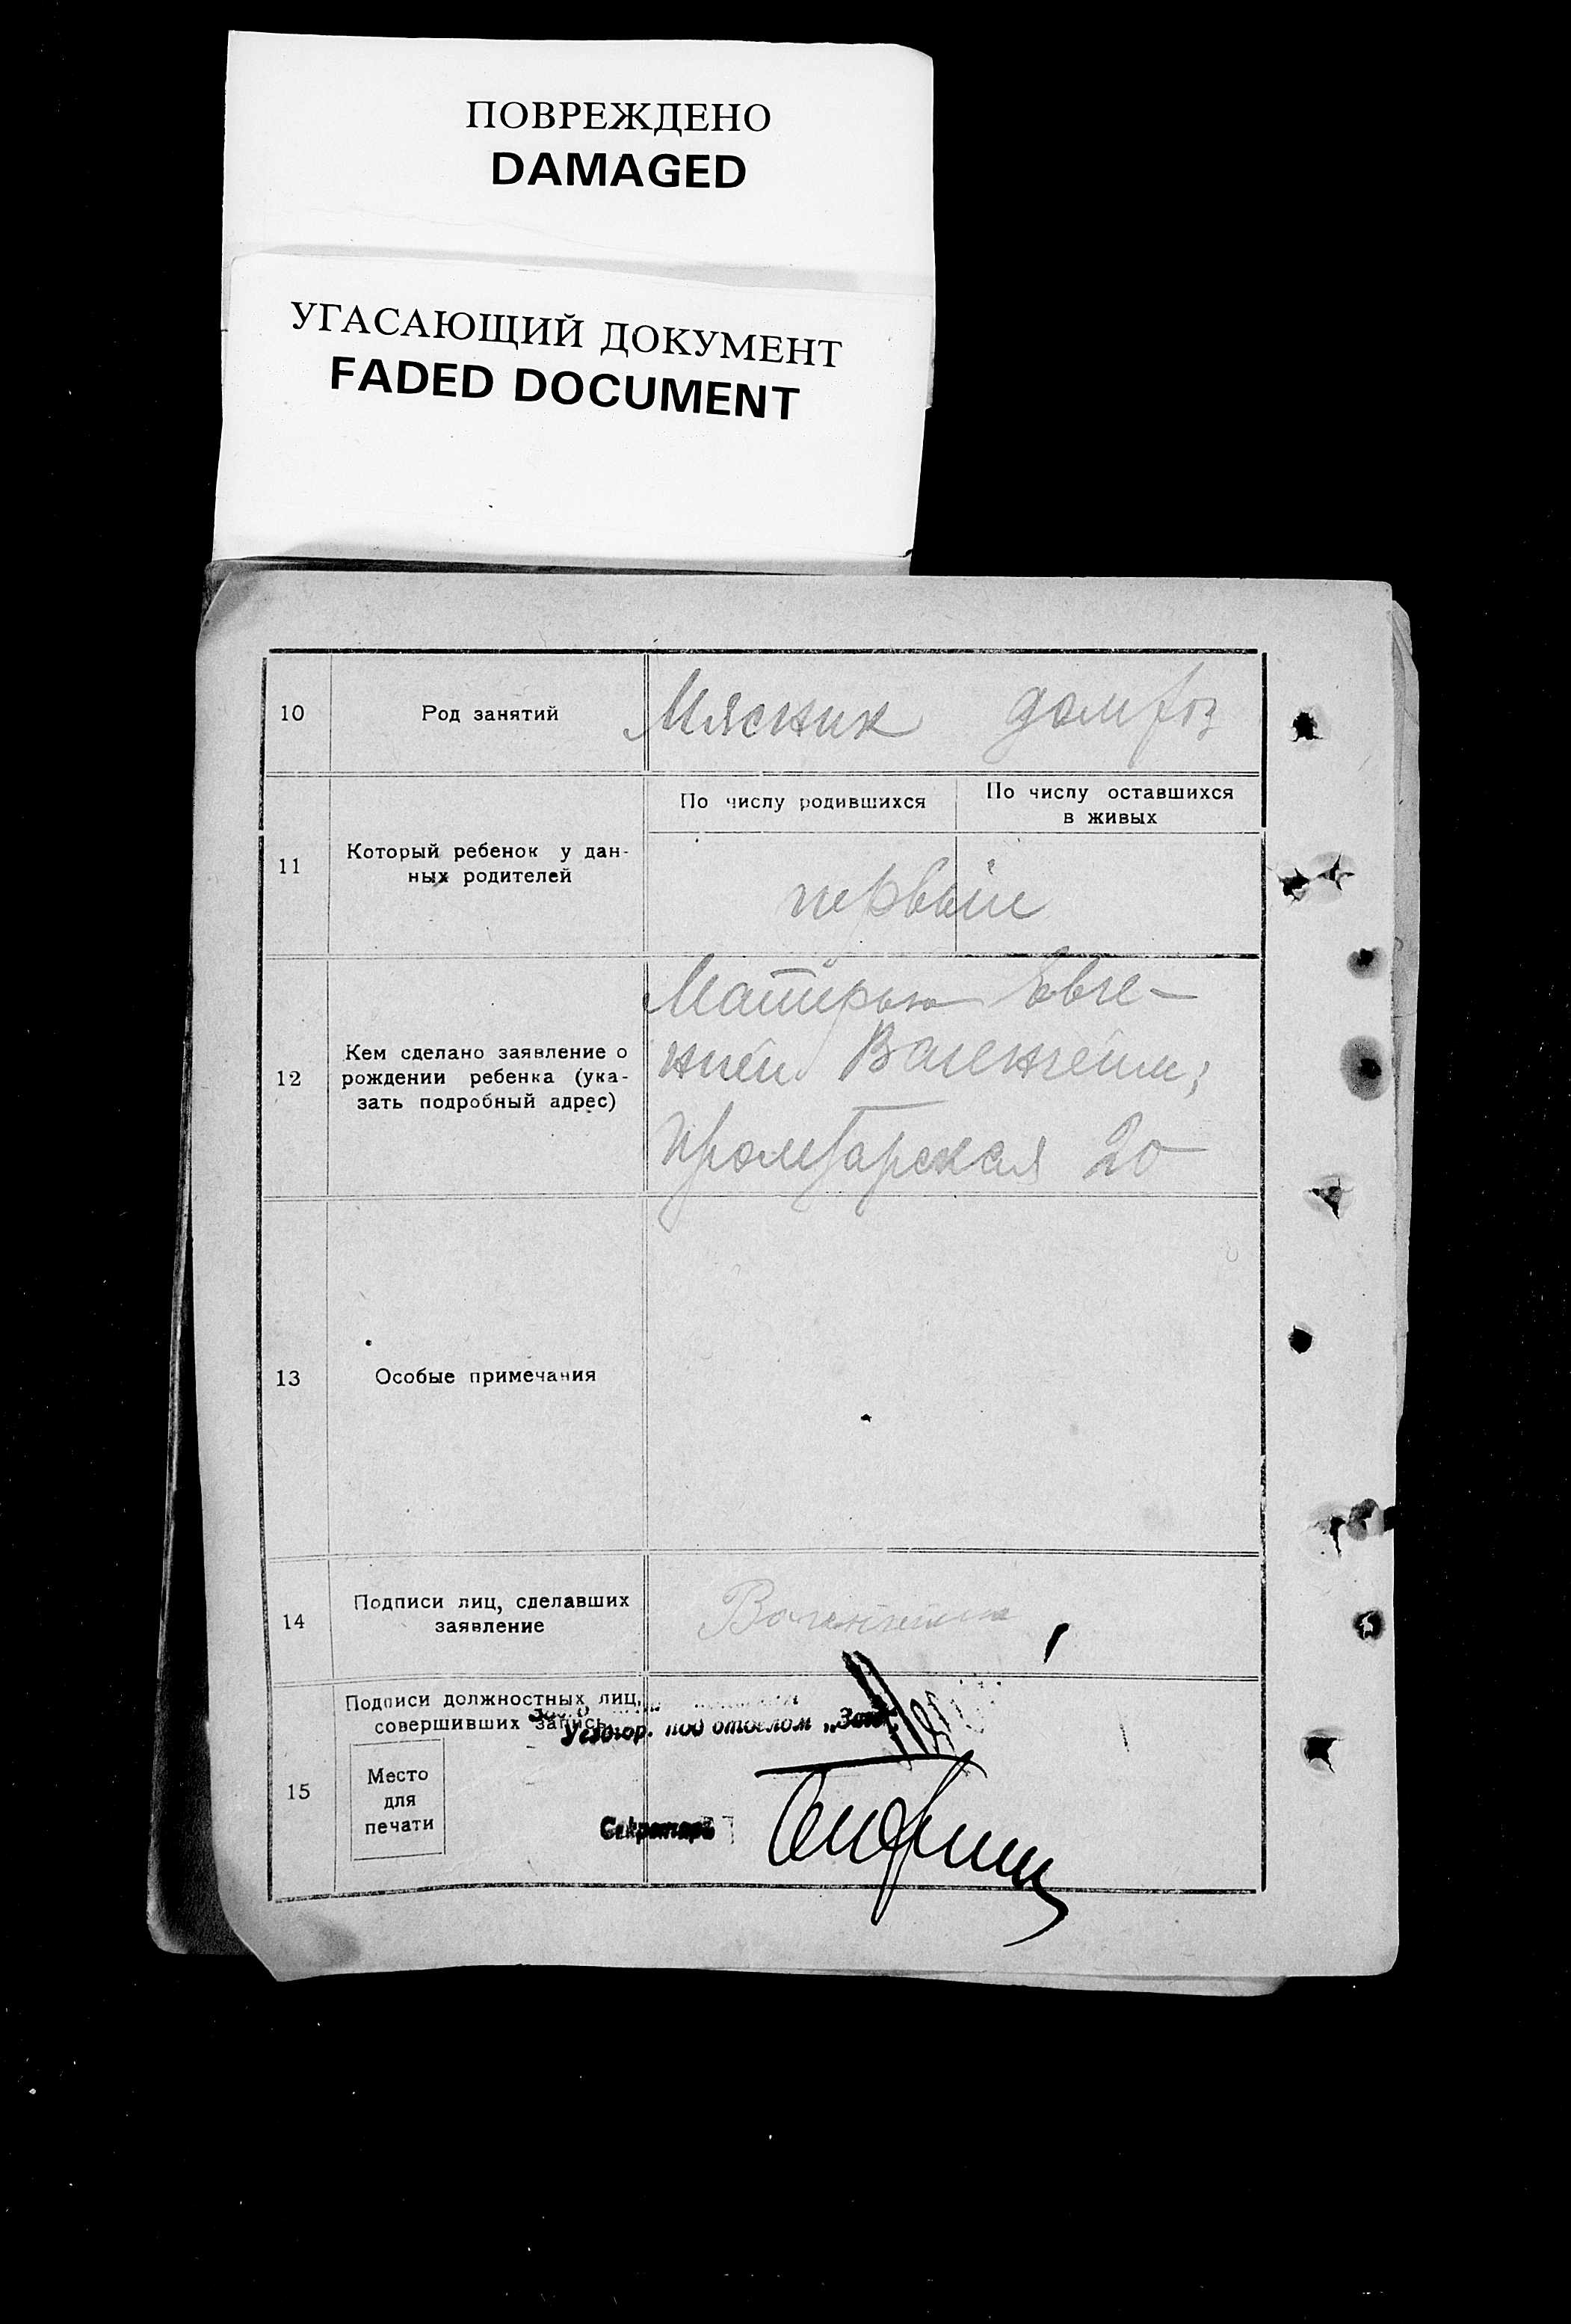 ПОВРЕЖДЕНО
DAMAGED
УГАСАЮЩИЙ ДОКУМЕНТ
FADED DOCUMENT
10 Род занятий Мясник
11 Который ребенок у дан-
ных родителей
По числу родившихся По числу оставшихся
в живых
первый
12 Кем сделано заявление о
рождении ребенка (ука-
зать подробный адрес)
Матерью Евге-
нией
20
13 Особые примечания
14 Подписи лиц, сделавших
заявление
15 Подписи должностных лиц,
совершивших запись
под отделом
Место
для
печати
Секретарь